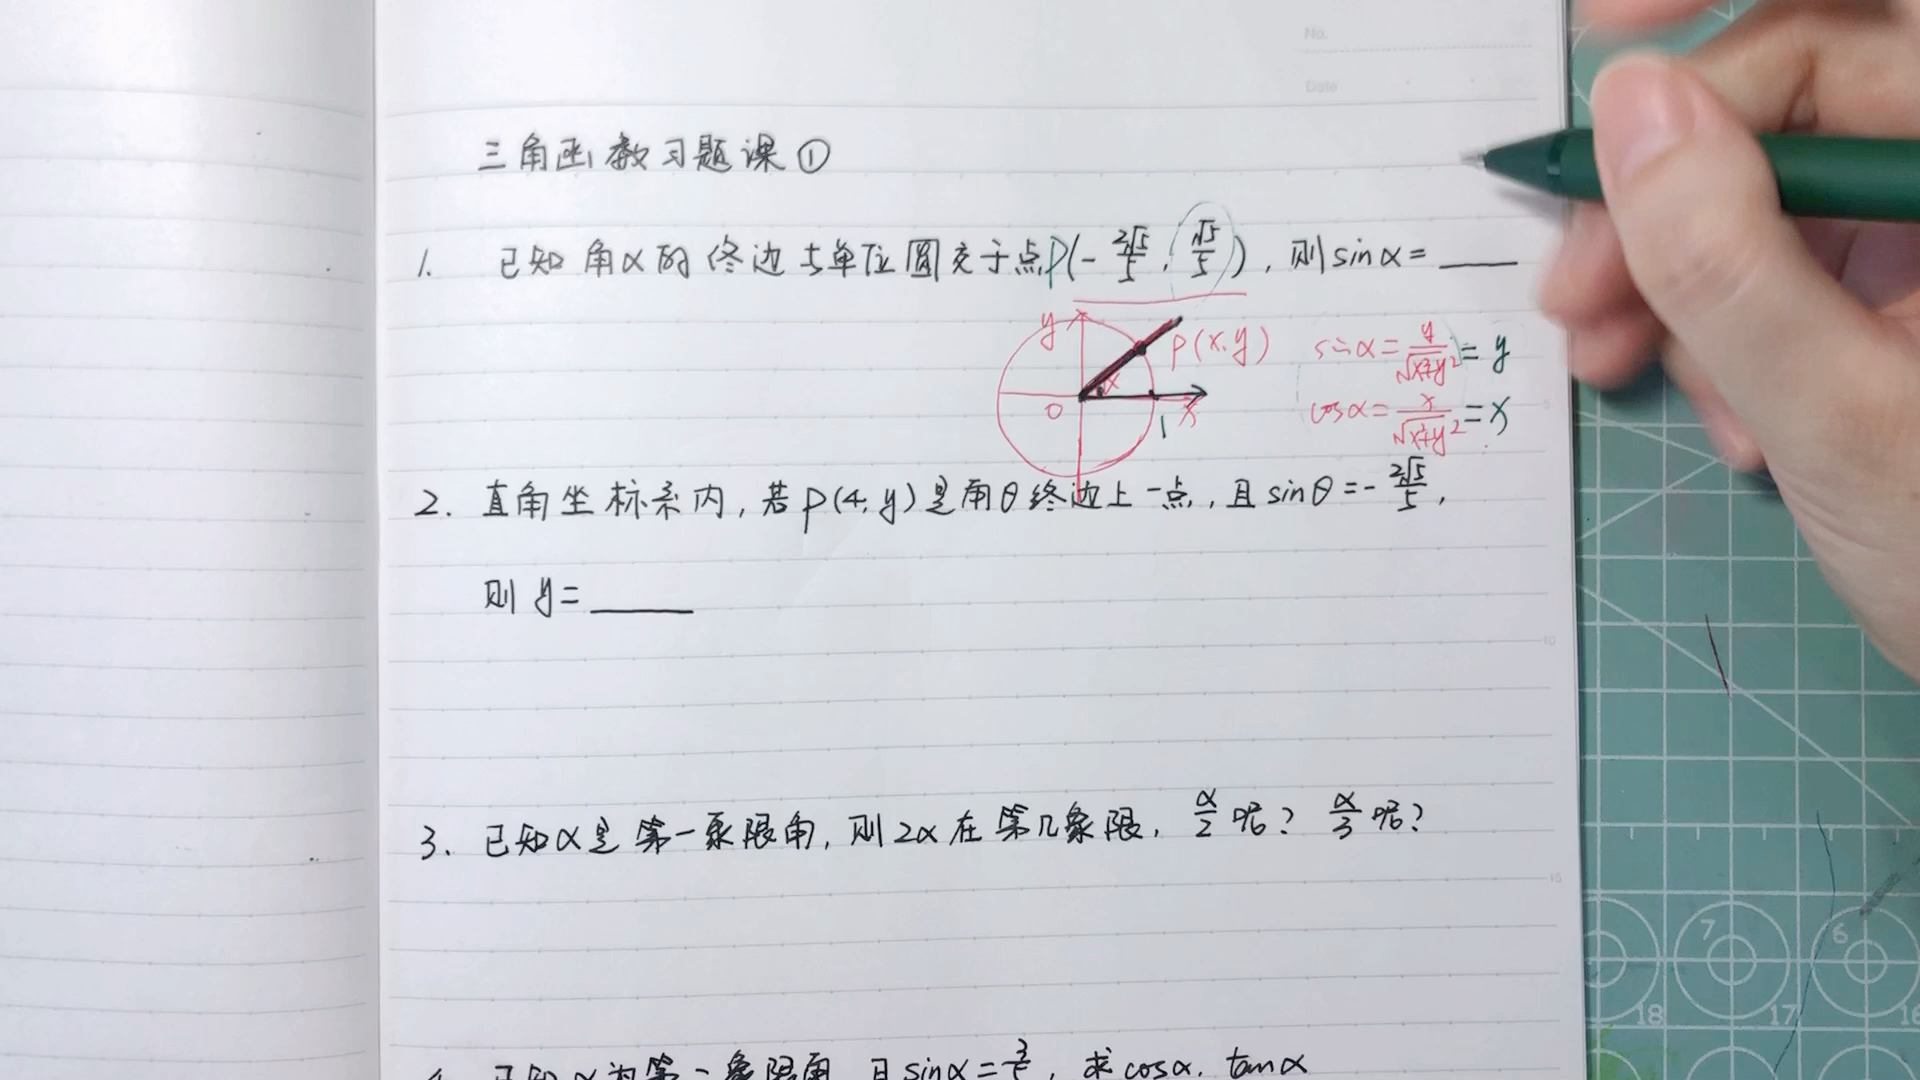 No.
Date
三角函数习题课①
1. 已知角α的终边与单位圆交于点P(-2√5/5, √5/5), 则sinα=____
y P(x,y) sinα=y/√x²+y²=y
α
O 1 x cosα=x/√x²+y²=x
2. 直角坐标系内, 若P(4, y)是角θ终边上一点, 且sinθ=-2√5/5,
则 y=____
3. 已知α是第一象限角, 则2α在第几象限, α/2呢? α/3呢?
象限角, 且sinα= , 求cosα, tanα
5
10
15
7 6
18 17 16